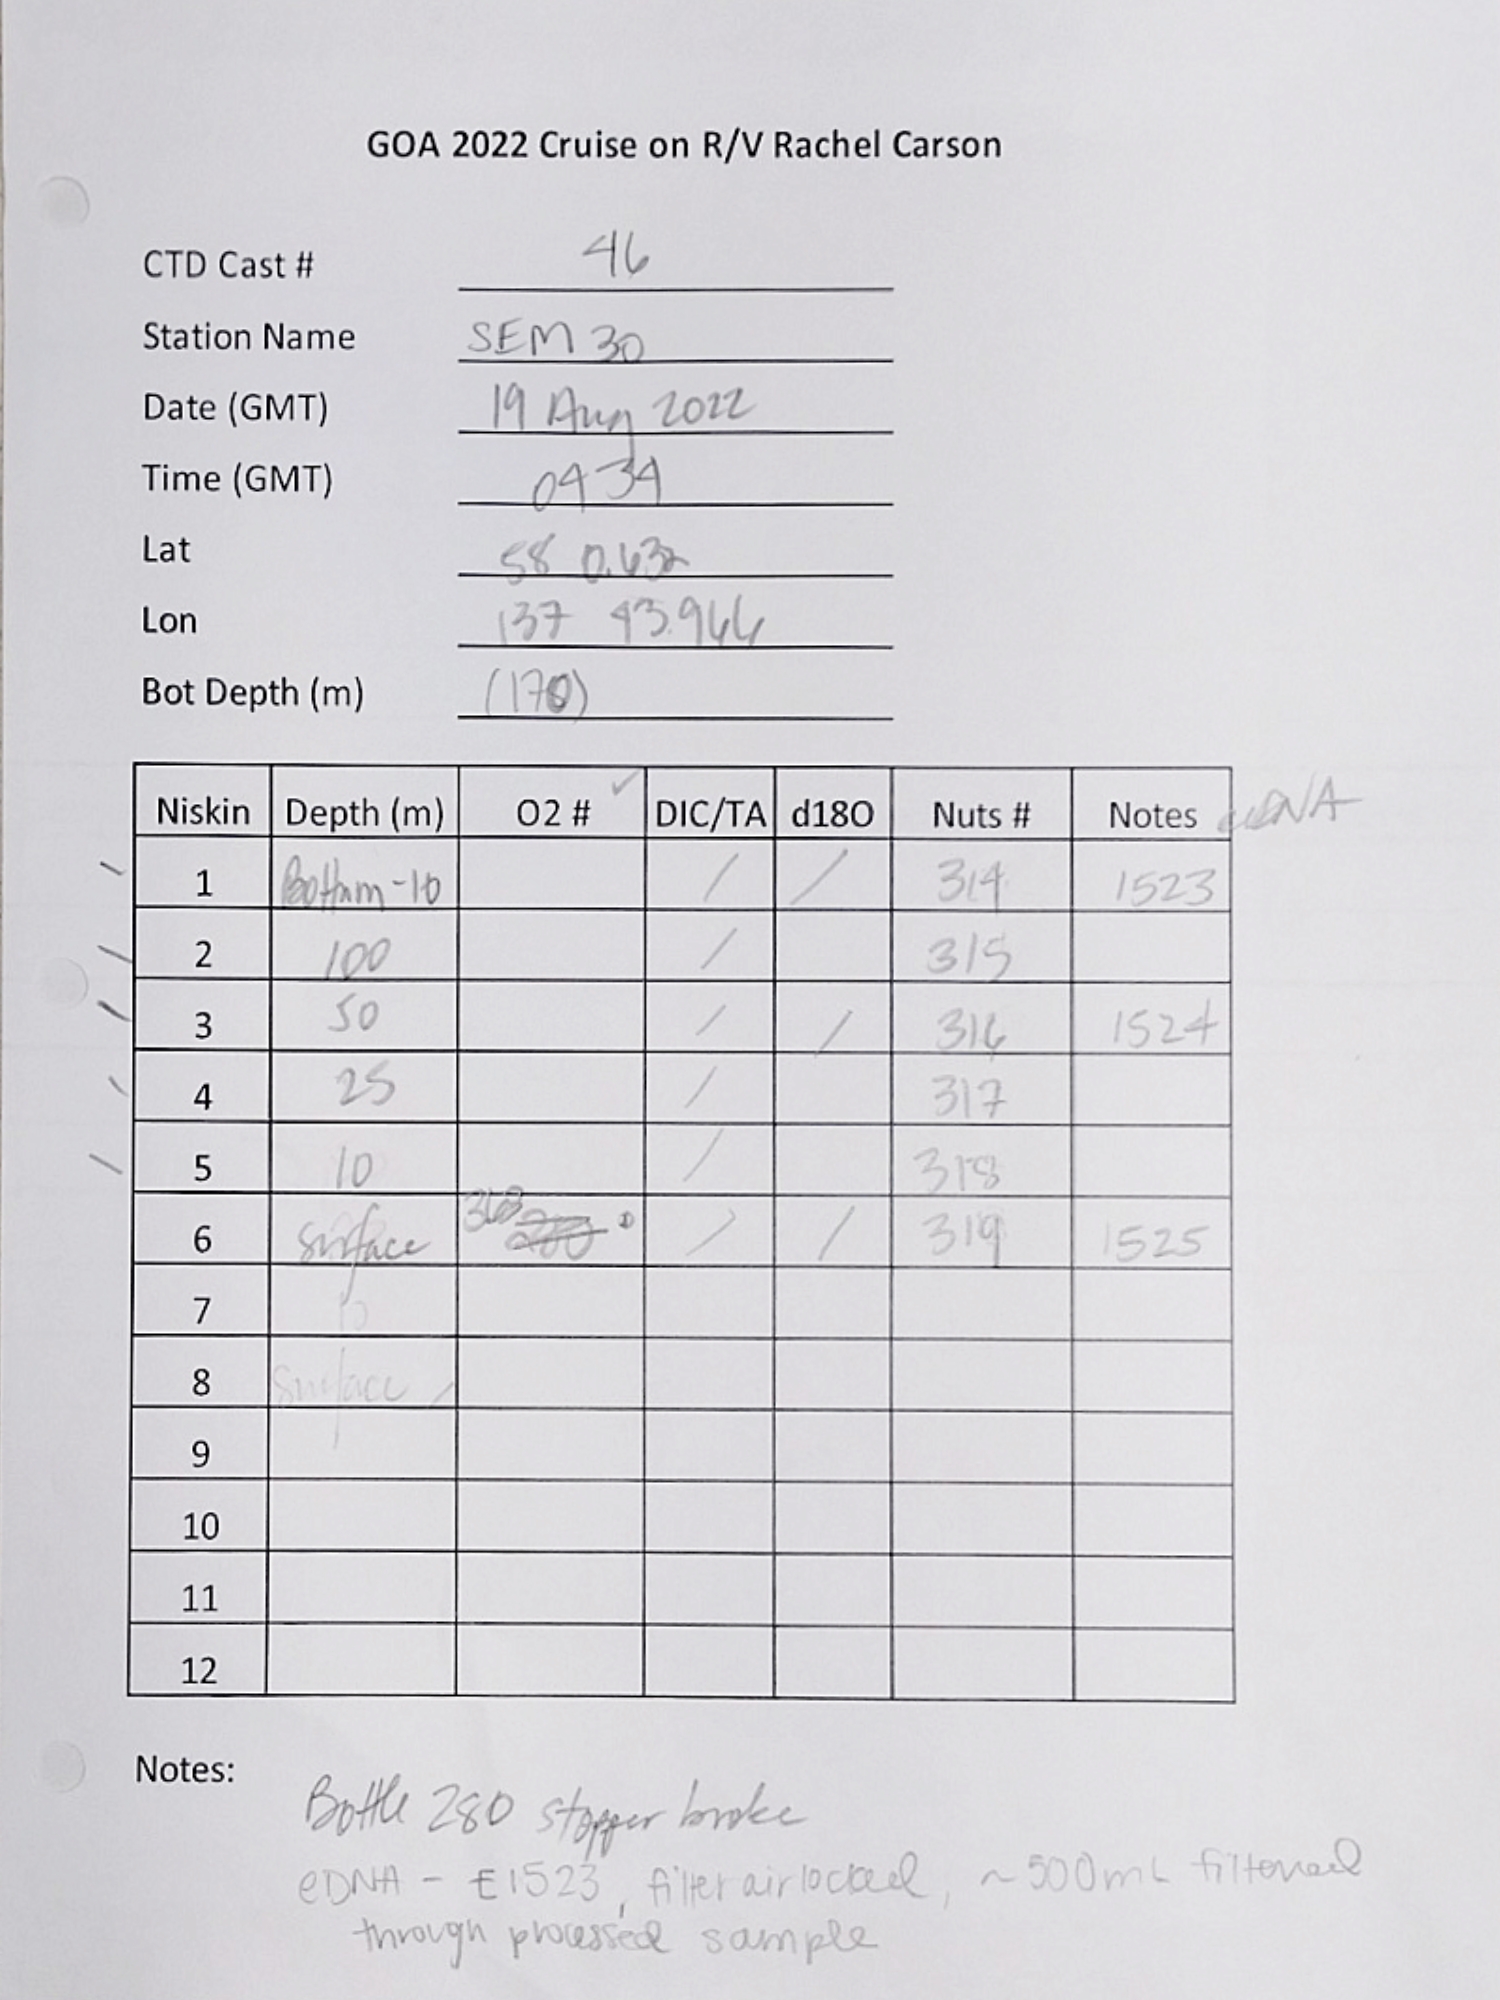 GOA 2022 Cruise on R/V Rachel Carson
CTD Cast # 46
Station Name SEM 30
Date (GMT) 19 Aug 2022
Time (GMT) 0434
Lat 58 0.632
Lon 137 43.966
Bot Depth (m) (170)
Niskin Depth (m) O2 # ✓ DIC/TA d18O Nuts # Notes eDNA
\ 1 Bottom -10 / / 314 1523
\ 2 100 / 315
\ 3 50 / / 316 1524
\ 4 25 / 317
\ 5 10 / 318
6 surface 368 280 / / 319 1525
7 10
8 surface /
9
10
11
12
Notes:
Bottle 280 stopper broke
eDNA - E1523, filter airlocked, ~500mL filtered
through processed sample